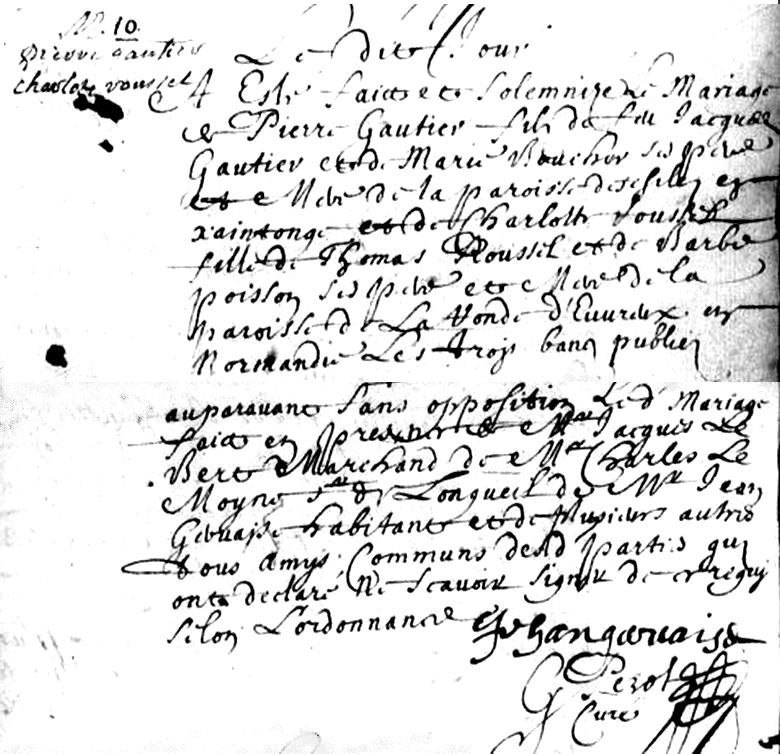 M. 10
pierre gautier
charlote roussel
Le dit Jour
A Esté faict et solemnizé Le Mariage
de Pierre Gautier fils de feu Jacques
Gautier et de Marie Boucher ses pere
et Mere de la paroisse de en
xaintonge et de Charlotte Roussel
fille de Thomas Roussel et de Barbe
poisson ses pere et Mere de la
paroisse de La Vonde d'Euureux en
Normandie Les trois bans publiez
auparavant sans opposition Le d Mariage
faict en presence de Mr Jacques Le
Bert Marchand de Mr Charles Le
Moyne sr de Longueil de Mr Jean
Gervaise habitant et de plusieurs autres
tous amys Communs desd parties qui
ont declaré Ne scavoir signer de ce requis
selon L'ordonnance Jehan gervaise
G Perot
Curé